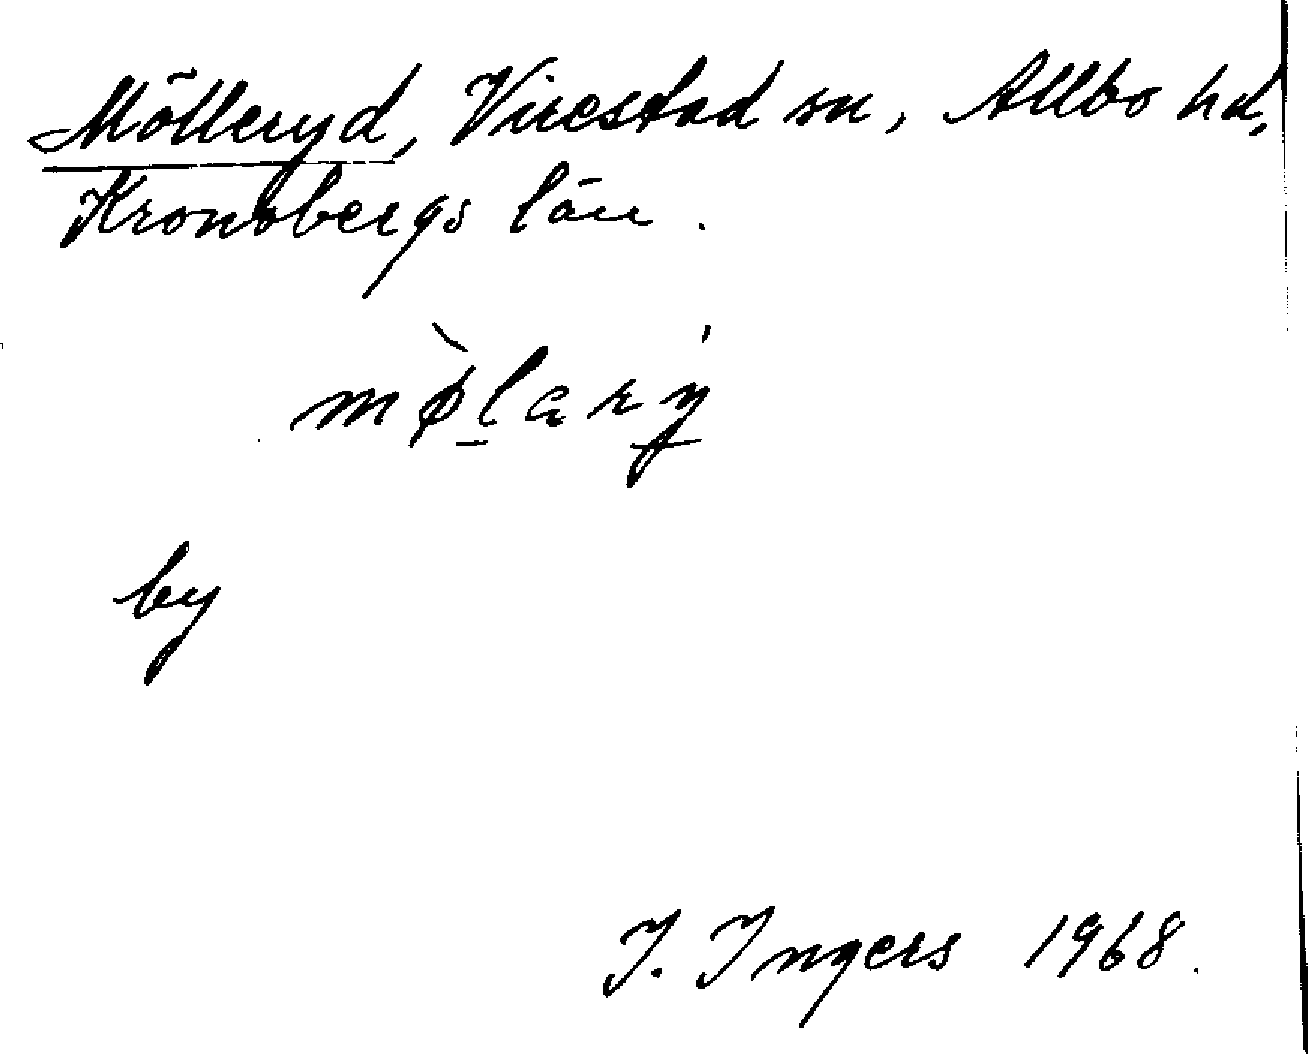 Mölleryd, Virestad sn, Allbo hd,
Kronobergs län.
mø̀l̠arý
by
I. Ingers 1968.